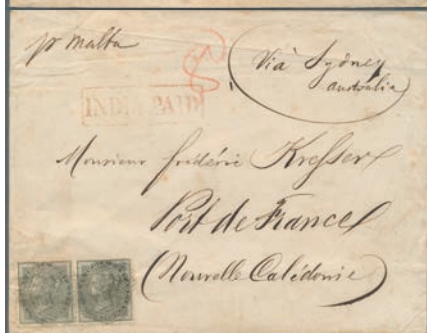 pr Malta
Via Sydney
Australia
INDIA PAID
Monsieur frédéric Kresser
Port de France
(Nouvelle Calédonie)